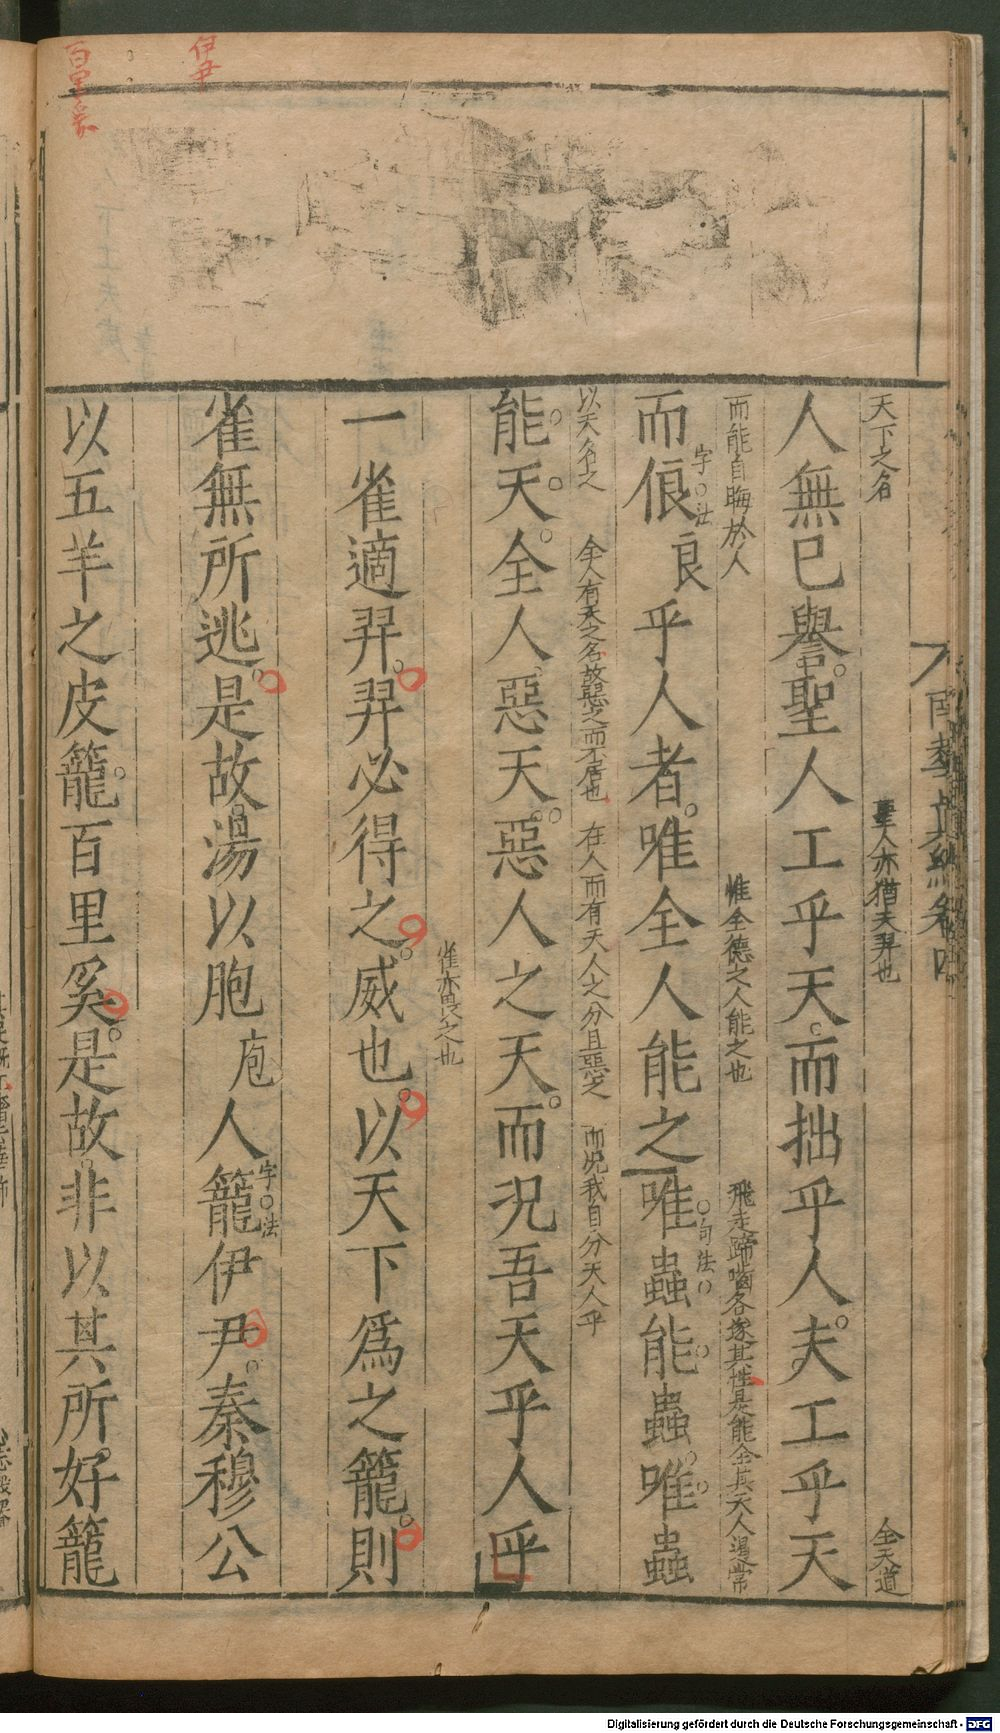 伊尹
百里奚
天下之名
聖人亦猶天羿也
全天道
人無已譽聖人工乎天而拙乎人夫工乎天
而能自晦於人
惟全德之人能之也
飛走蹄嚙各遂其性是能全其天人還常
而俍良乎人者唯全人能之唯蟲能蟲唯蟲
字法
句法
以天名之
全人有天之名故惡之而不居也
在人而有天人之分且惡之
而况我自分天人乎
能天全人惡天惡人之天而况吾天乎人乎
雀亦畏之也
一雀適羿羿必得之威也以天下爲之籠則
雀無所逃是故湯以胞庖人籠伊尹秦穆公
字法
以五羊之皮籠百里奚是故非以其所好籠
Digitalisierung gefördert durch die Deutsche Forschungsgemeinschaft - DFG